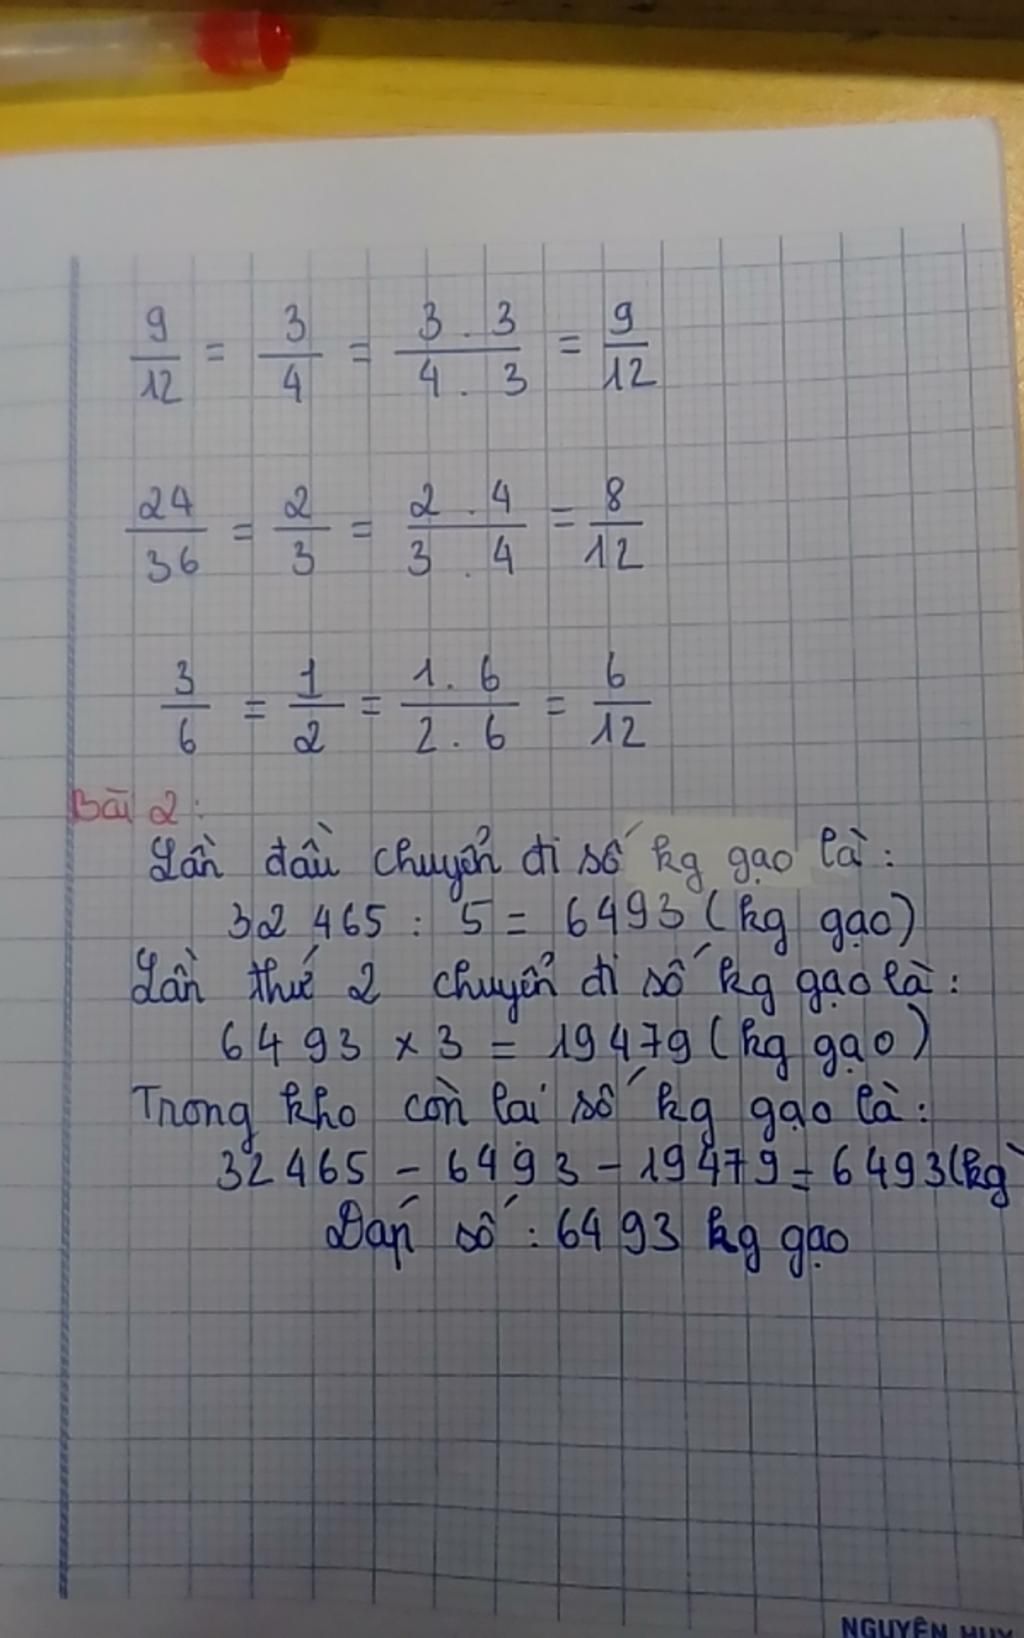 9/12 = 3/4 = 3 . 3/4 . 3 = 9/12
24/36 = 2/3 = 2 . 4/3 . 4 = 8/12
3/6 = 1/2 = 1 . 6/2 . 6 = 6/12
Bài 2:
Lần đầu chuyển đi số kg gạo là:
32 465 : 5 = 6493 (kg gạo)
Lần thứ 2 chuyển đi số kg gạo là:
6493 x 3 = 19479 (kg gạo)
Trong kho còn lại số kg gạo là:
32465 - 6493 - 19479 = 6493 (kg)
Đáp số : 6493 kg gạo
NGUYÊN HUY